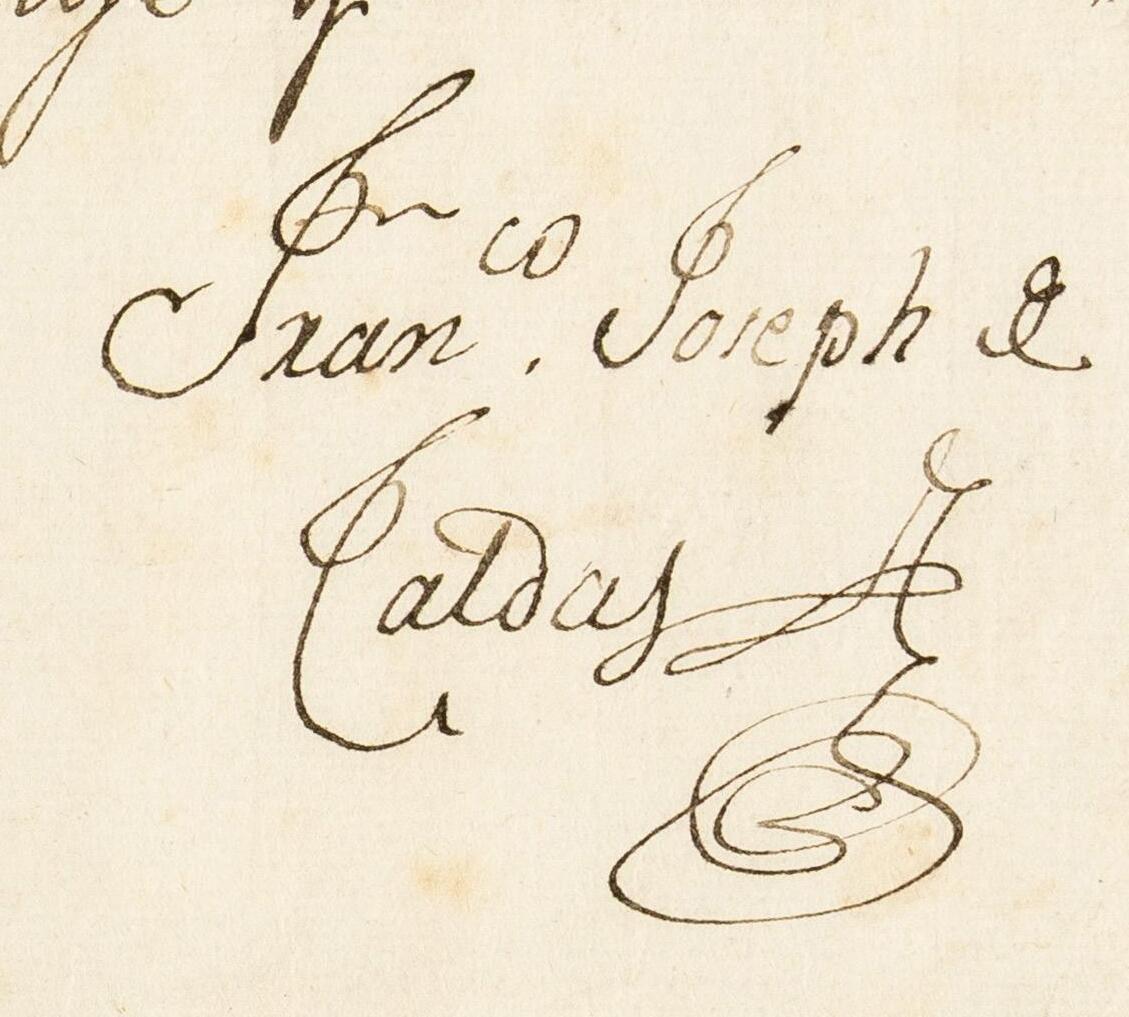 Fran.co Joseph de
Caldas